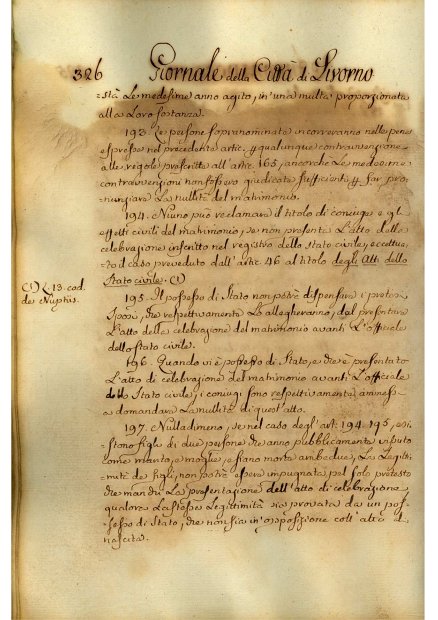 326 Giornale della Città di Livorno
=stà Le medesime anno agito, in'una multa proporzionata
alla Loro sostanza.
193. Le persone sopranominate incorreranno nelle pene
espresse nel precedente artic. qualunque contravvenzione
alle regole prescritte dall'artic. 165, ancorche Le medesime
contravvenzioni non fossero giudicate sufficienti far pro=
nunziare La nullità del matrimonio.
194. Niuno può reclamare il titolo di coniuge e gl'
effetti civili del matrimonio, se non presenta L'atto della
celebrazione inscritto nel registro dello Stato civile, eccettua=
to il caso preveduto dall'artic. 46 al titolo degli Atti dello
Stato civile. (1)
(1) L. 13. cod.
de Nuptis.
195. Il possesso di Stato non potrà dispensare i pretesi
Sposi, che respettivamente Lo allegheranno, dal presentare
L'atto della celebrazione del matrimonio avanti L'offiziale
dello stato civile.
196. Quando vi è possesso di Stato, e che è presentato
L'atto di celebrazione del matrimonio avanti L'offiziale
dello Stato civile, i coniugi sono respettivamente
a domandare La nullità di quest'atto.
197. Nulladimeno, se nel caso degl'art. 194 195, esi=
stono figli di due persone che anno pubblicamente vissuto
come marito, e moglie, e siano morte ambedue, La Legitti=
mità de figli, non potrà essere impugnata pel solo pretesto
che manchi La presentazione dell'atto di celebrazione,
qualora La stessa Legittimità sia provata da un pos=
=sesso di Stato, che non sia in'opposizione coll'atto di
nascita.